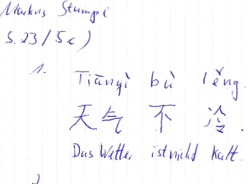 Markus Stumpf
S. 23 / 5c)
1. Tiānqì bù lěng.
天气不冷.
Das Wetter ist nicht kalt.
2